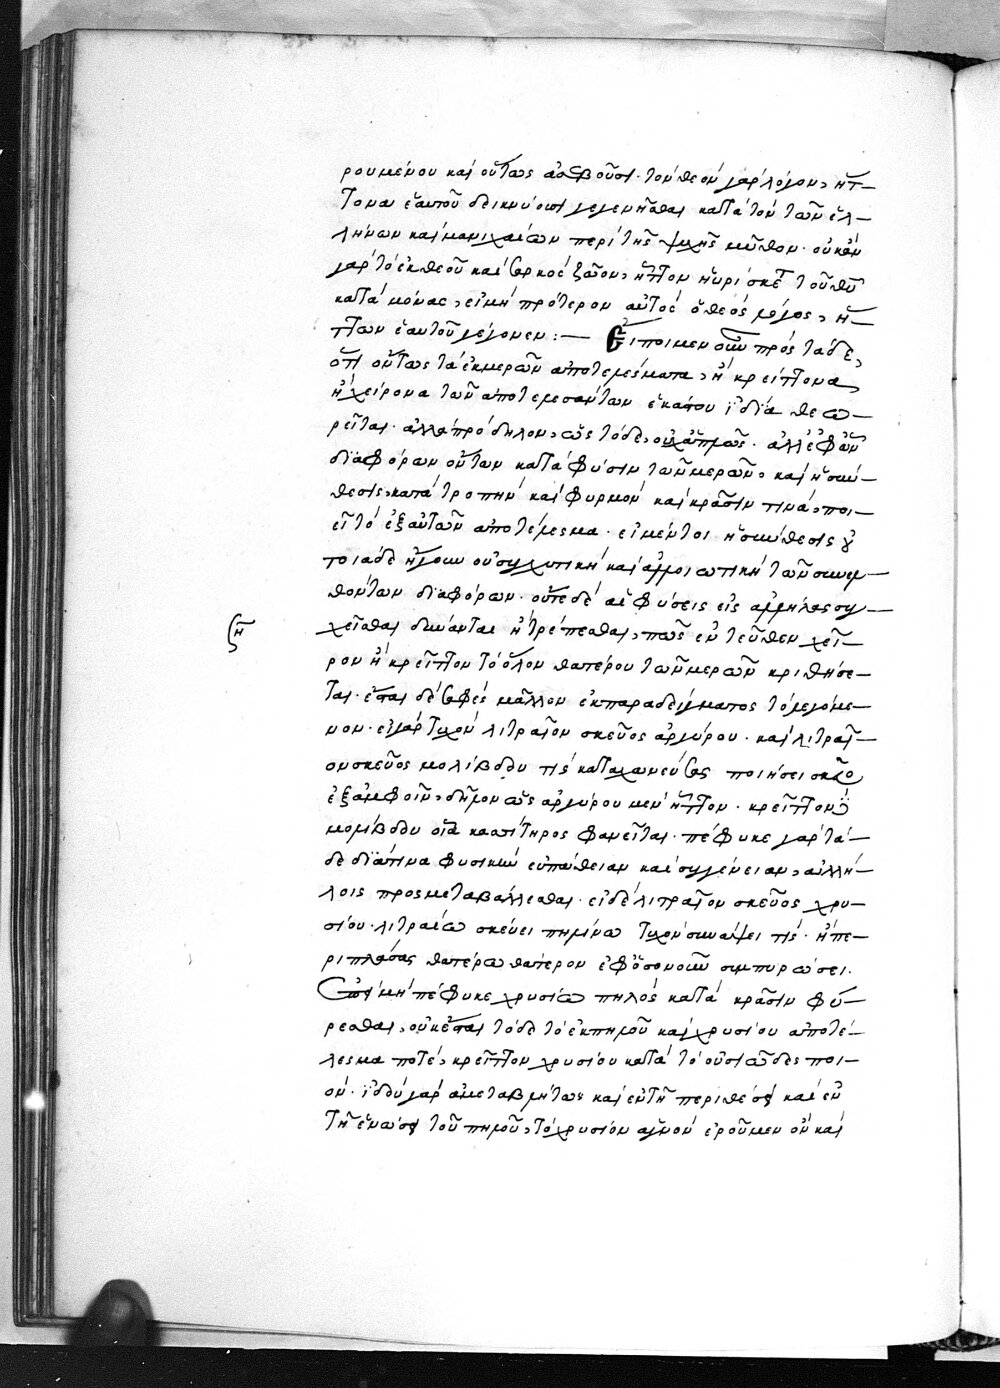 ρουμένου καὶ οὕτως ἀσεβοῦσι· τὸν θεὸν γὰρ λόγον, ἥτ-
τονα ἑαυτοῦ δεικνύουσι γεγενῆσθαι κατὰ τὸν τῶν ἑλ-
λήνων καὶ μανιχαίων περὶ τῆς ψυχῆς μῦθον· οὐκ ἂν
γὰρ τὸ ἐκ θεοῦ καὶ σαρκὸς ζῶον, ἧττον ηὑρίσκετο τοῦ θῦ
κατὰ μόνας, εἰ μὴ πρότερον αὐτὸς ὁ θεὸς λόγος, ἥ-
ττων ἑαυτοῦ γέγονεν:— Εἴποιμεν οὖν πρὸς τάδε,
ὅτι οὕτως τὰ ἐκ μερῶν ἀποτελέσματα, ἢ κρείττονα,
ἢ χείρονα τῶν ἀποτελεσάντων ἑκάστου ἰδία θεω-
ρεῖται· ἀλλὰ πρόδηλον, ὡς τόδε, οὐχ ἁπλῶς· ἀλλ' ἐφ' ὧν
διαφόρων ὄντων κατὰ φύσιν τῶν μερῶν, καὶ ἡ σύν-
θεσις, κατὰ τροπὴν καὶ φυρμὸν καὶ κρᾶσίν τινα, ποι-
εῖ τὸ ἐξ αὐτῶν ἀποτέλεσμα· εἰ μέντοι ἡ σύνθεσις οὐ
τοιάδε ἤγουν οὐ συγχυτικὴ καὶ ἀλλοιωτικὴ τῶν συνελ-
θόντων διαφόρων· οὔτε δὲ αἱ φύσεις εἰς ἀλλήλας συγ-
χεῖσθαι δύνανται ἢ τρέπεσθαι, πῶς ἐντεῦθεν χεῖ-
ρον ἢ κρεῖττον τὸ ὅλον θατέρου τῶν μερῶν κριθήσε-
ται· ἔσται δὲ σαφὲς μᾶλλον ἐκ παραδείγματος τὸ λεγόμε-
νον· εἰ γὰρ τυχὸν λιτραῖον σκεῦος ἀργύρου· καὶ λιτραῖ-
ον σκεῦος μολίβδου τις καταχωνεύσας ποιήσει σκεῦος
ἐξ ἀμφοῖν, δῆλον ὡς ἀργύρου μὲν ἧττον· κρεῖττον δὲ
μολίβδου οἷα κασσίτηρος φανεῖται· πέφυκε γὰρ τά-
δε διά τινα φυσικὴν εὐπάθειαν καὶ συγγένειαν, ἀλλή-
λοις προσμεταβάλλεσθαι· εἰ δὲ λιτραῖον σκεῦος χρυ-
σίου· λιτραίω σκεύει πηλίνω τυχὸν συνάψει τίς· ἢ πε-
ριπλάσας θατέρω θάτερον ἐφ' ὅσον οὖν συμπυρώσει.
ὡς μὴ πέφυκε χρυσίω πηλὸς κατὰ κρᾶσιν φύ-
ρεσθαι, οὐκ ἔσται τόδε τὸ ἐκ πηλοῦ καὶ χρυσίου ἀποτέ-
λεσμά ποτε, κρεῖττον χρυσίου κατὰ τὸ οὐσιῶδες ποι-
όν· ἰδοὺ γὰρ ἀμεταβλήτως καὶ ἐν τῇ περιθέσει καὶ ἐν
τῇ ἑνώσει τοῦ πηλοῦ, τὸ χρυσίον ἁγνὸν ἐροῦμεν ὂν καὶ